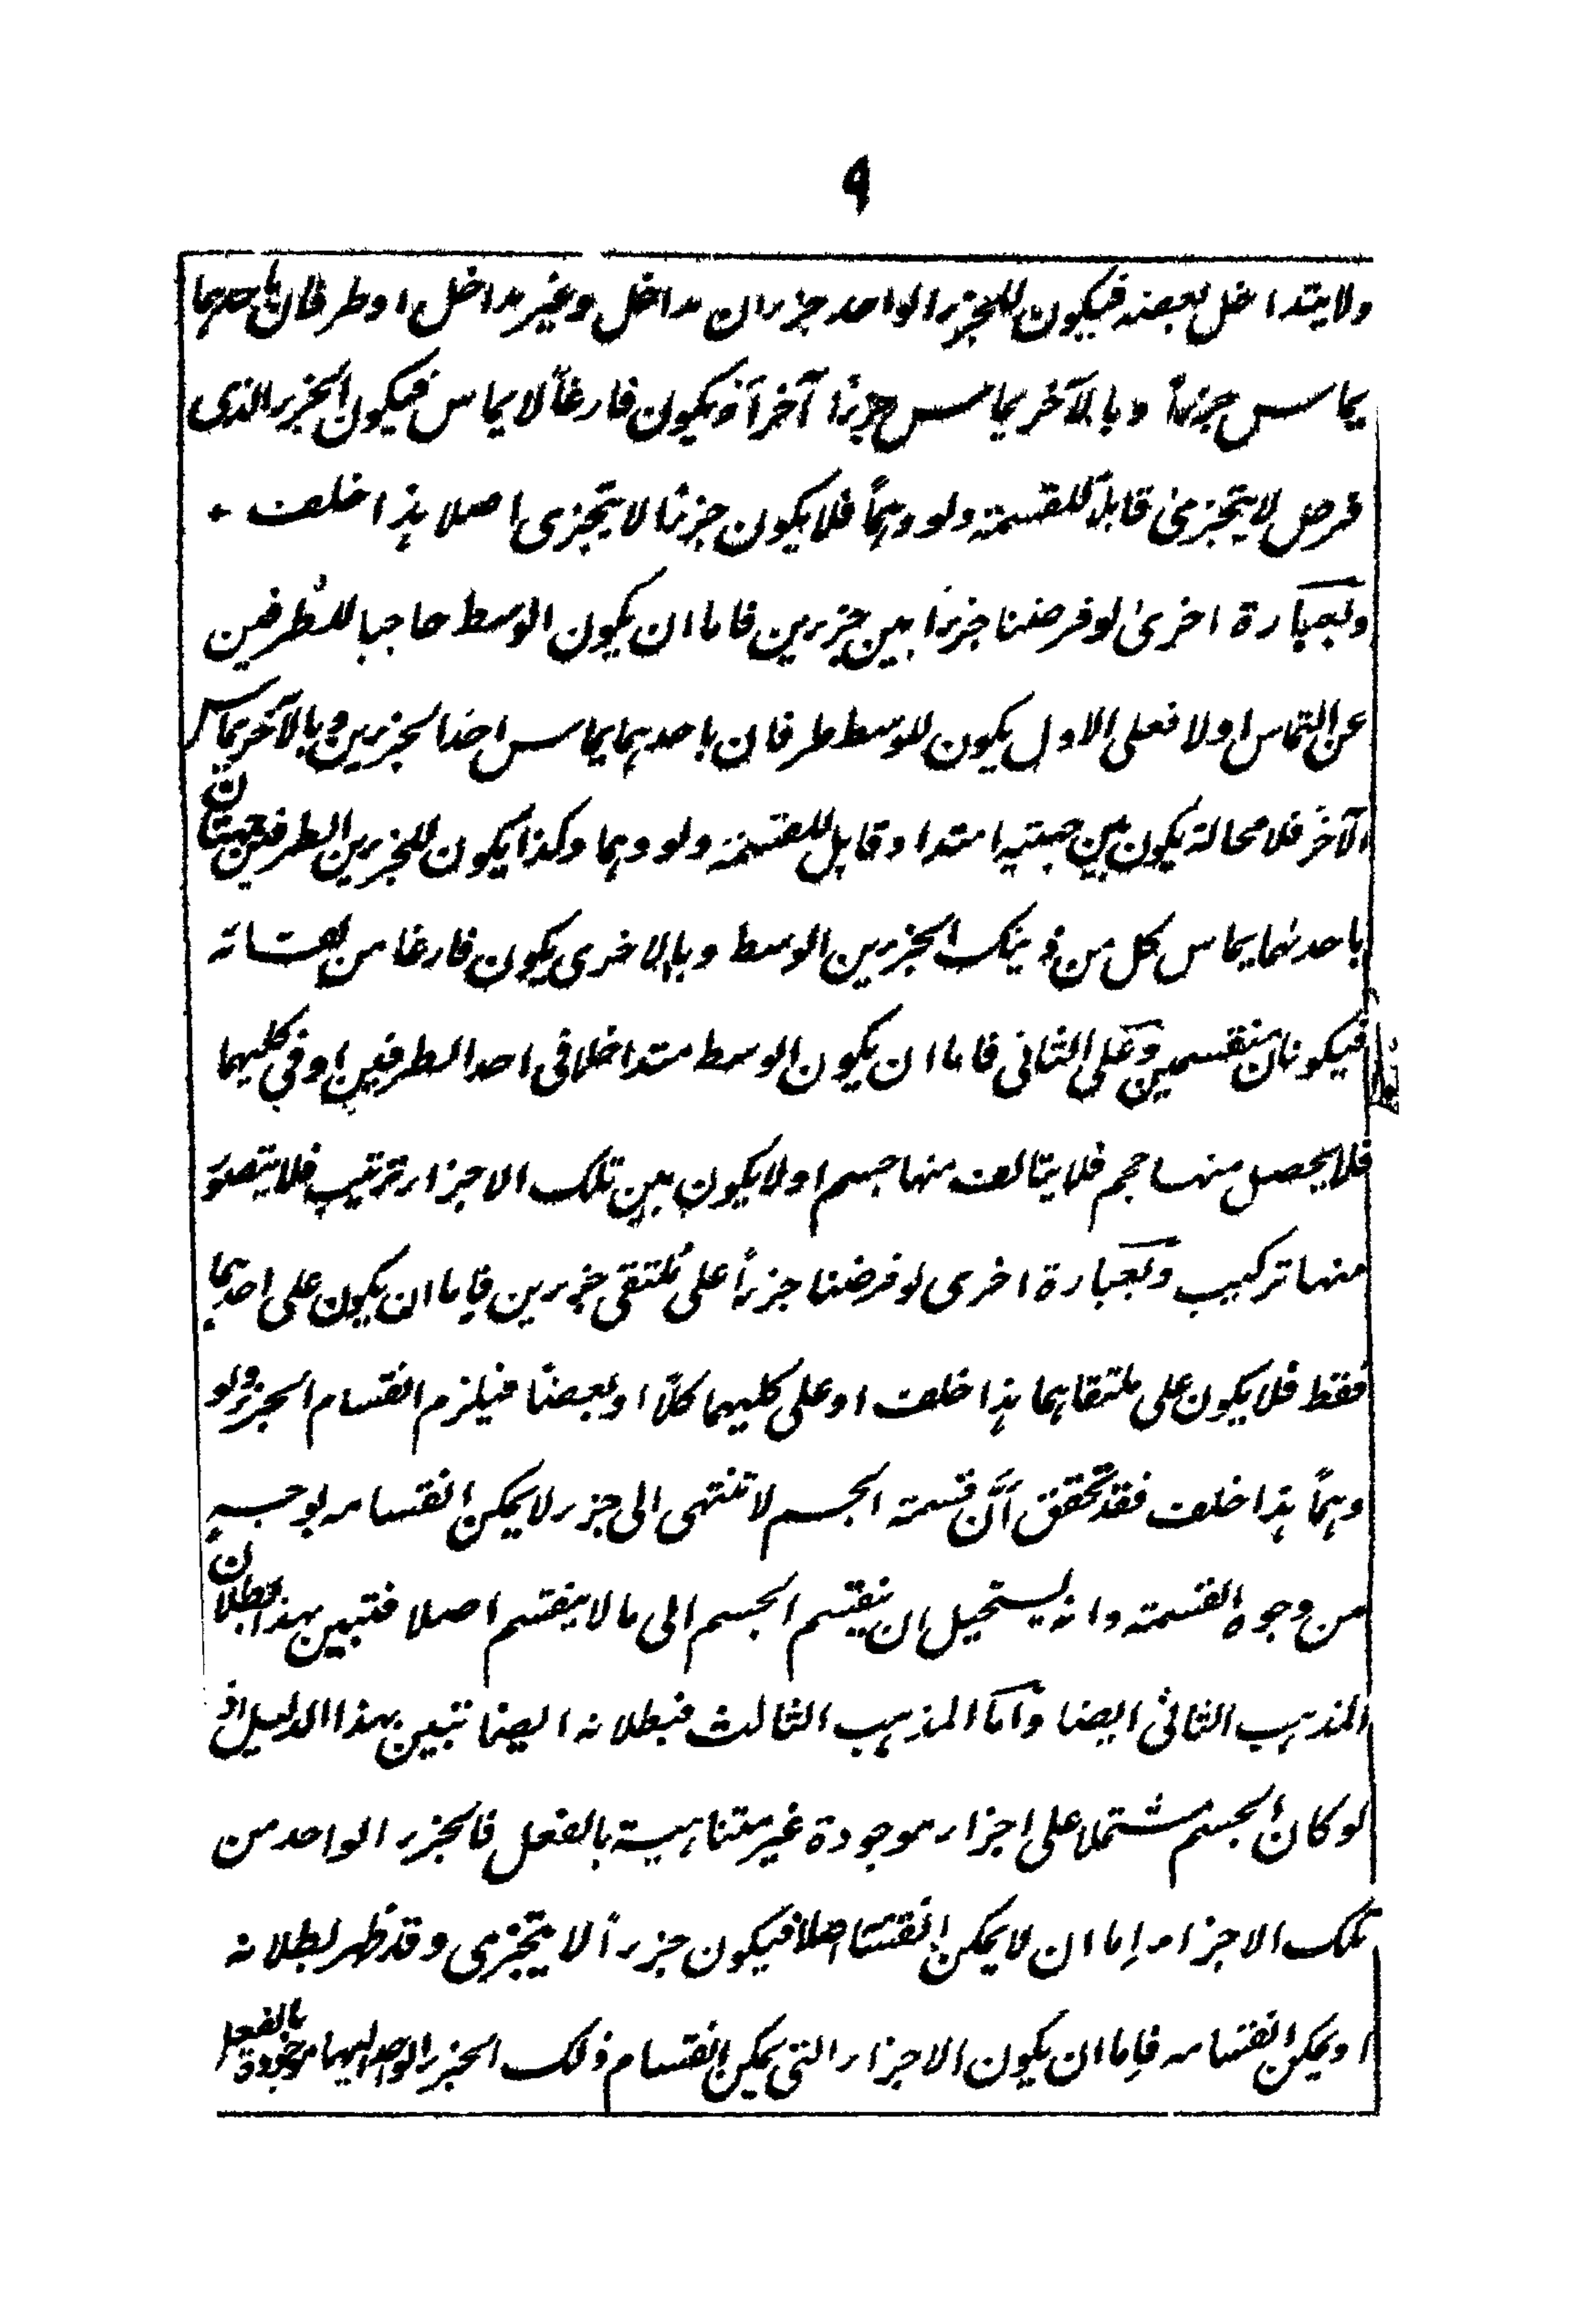 ٩
ولا يتداخل بعضه فيكون للجزء الواحد جزءان مداخل وغير مداخل او طرفان باحدهما
يماس جزءاً وبالآخر يماس جزءاً آخراً او يكون فارغاً لا يماس فيكون الجزء الذى
فرض لا يتجزى قابلاً للقسمة ولو وهماً فلا يكون جزءاً لا يتجزى اصلا هذا خلف ٠
وبعبارة اخرىٰ لو فرضنا جزءاً بين جزءين فاما ان يكون الوسط حاجبا للطرفين
عن التماس او لا فعلى الاول يكون للوسط طرفان باحدهما يماس احد الجزءين وبالآخر يماس
الآخر فلا محالة يكون بين جهتيه امتداد قابل للقسمة ولو وهما وكذا يكون للجزءين الطرفين جهتان
باحدٰهما يماس كل من ذينك الجزءين الوسط وبالاخرى يكون فارغا من لقائه
فيكونان منقسمين وعلى الثانى فاما ان يكون الوسط متداخلا فى احد الطرفين او فى كليهما
فلا يحصل منها حجم فلا يتالف منها جسم او لا يكون بين تلك الاجزاء ترتيب فلا يتصور
منها تركيب وبعبارة اخرى لو فرضنا جزءاً على ملتقى جزءين فاما ان يكون على احدهما
فقط فلا يكون على ملتقاهما هذا خلف او على كليهما كلاً او بعضاً فيلزم انقسام الجزء ولو
وهماً هذا خلف فقد تحقق اَنَّ قسمة الجسم لا تنتهى الى جزء لا يمكن انقسامه بوجه
من وجوه القسمة وانه يستحيل ان ينقسم الجسم الى ما لا ينقسم اصلا فتبين بهذا بطلان
المذهب الثانى ايضا واما المذهب الثالث فبطلانه ايضا تبين بهذا الدليل اذ
لو كان الجسم مشتملا على اجزاء موجودة غير متناهية بالفعل فالجزء الواحد من
تلك الاجزاء اِما ان لا يمكن انقسامه اصلا فيكون جزءاً لا يتجزى وقد ظهر بطلانه
او يمكن انقسامه فاِما ان يكون الاجزاء التى يمكن انقسام ذلك الجزء الواحد اليها موجودة بالفعل